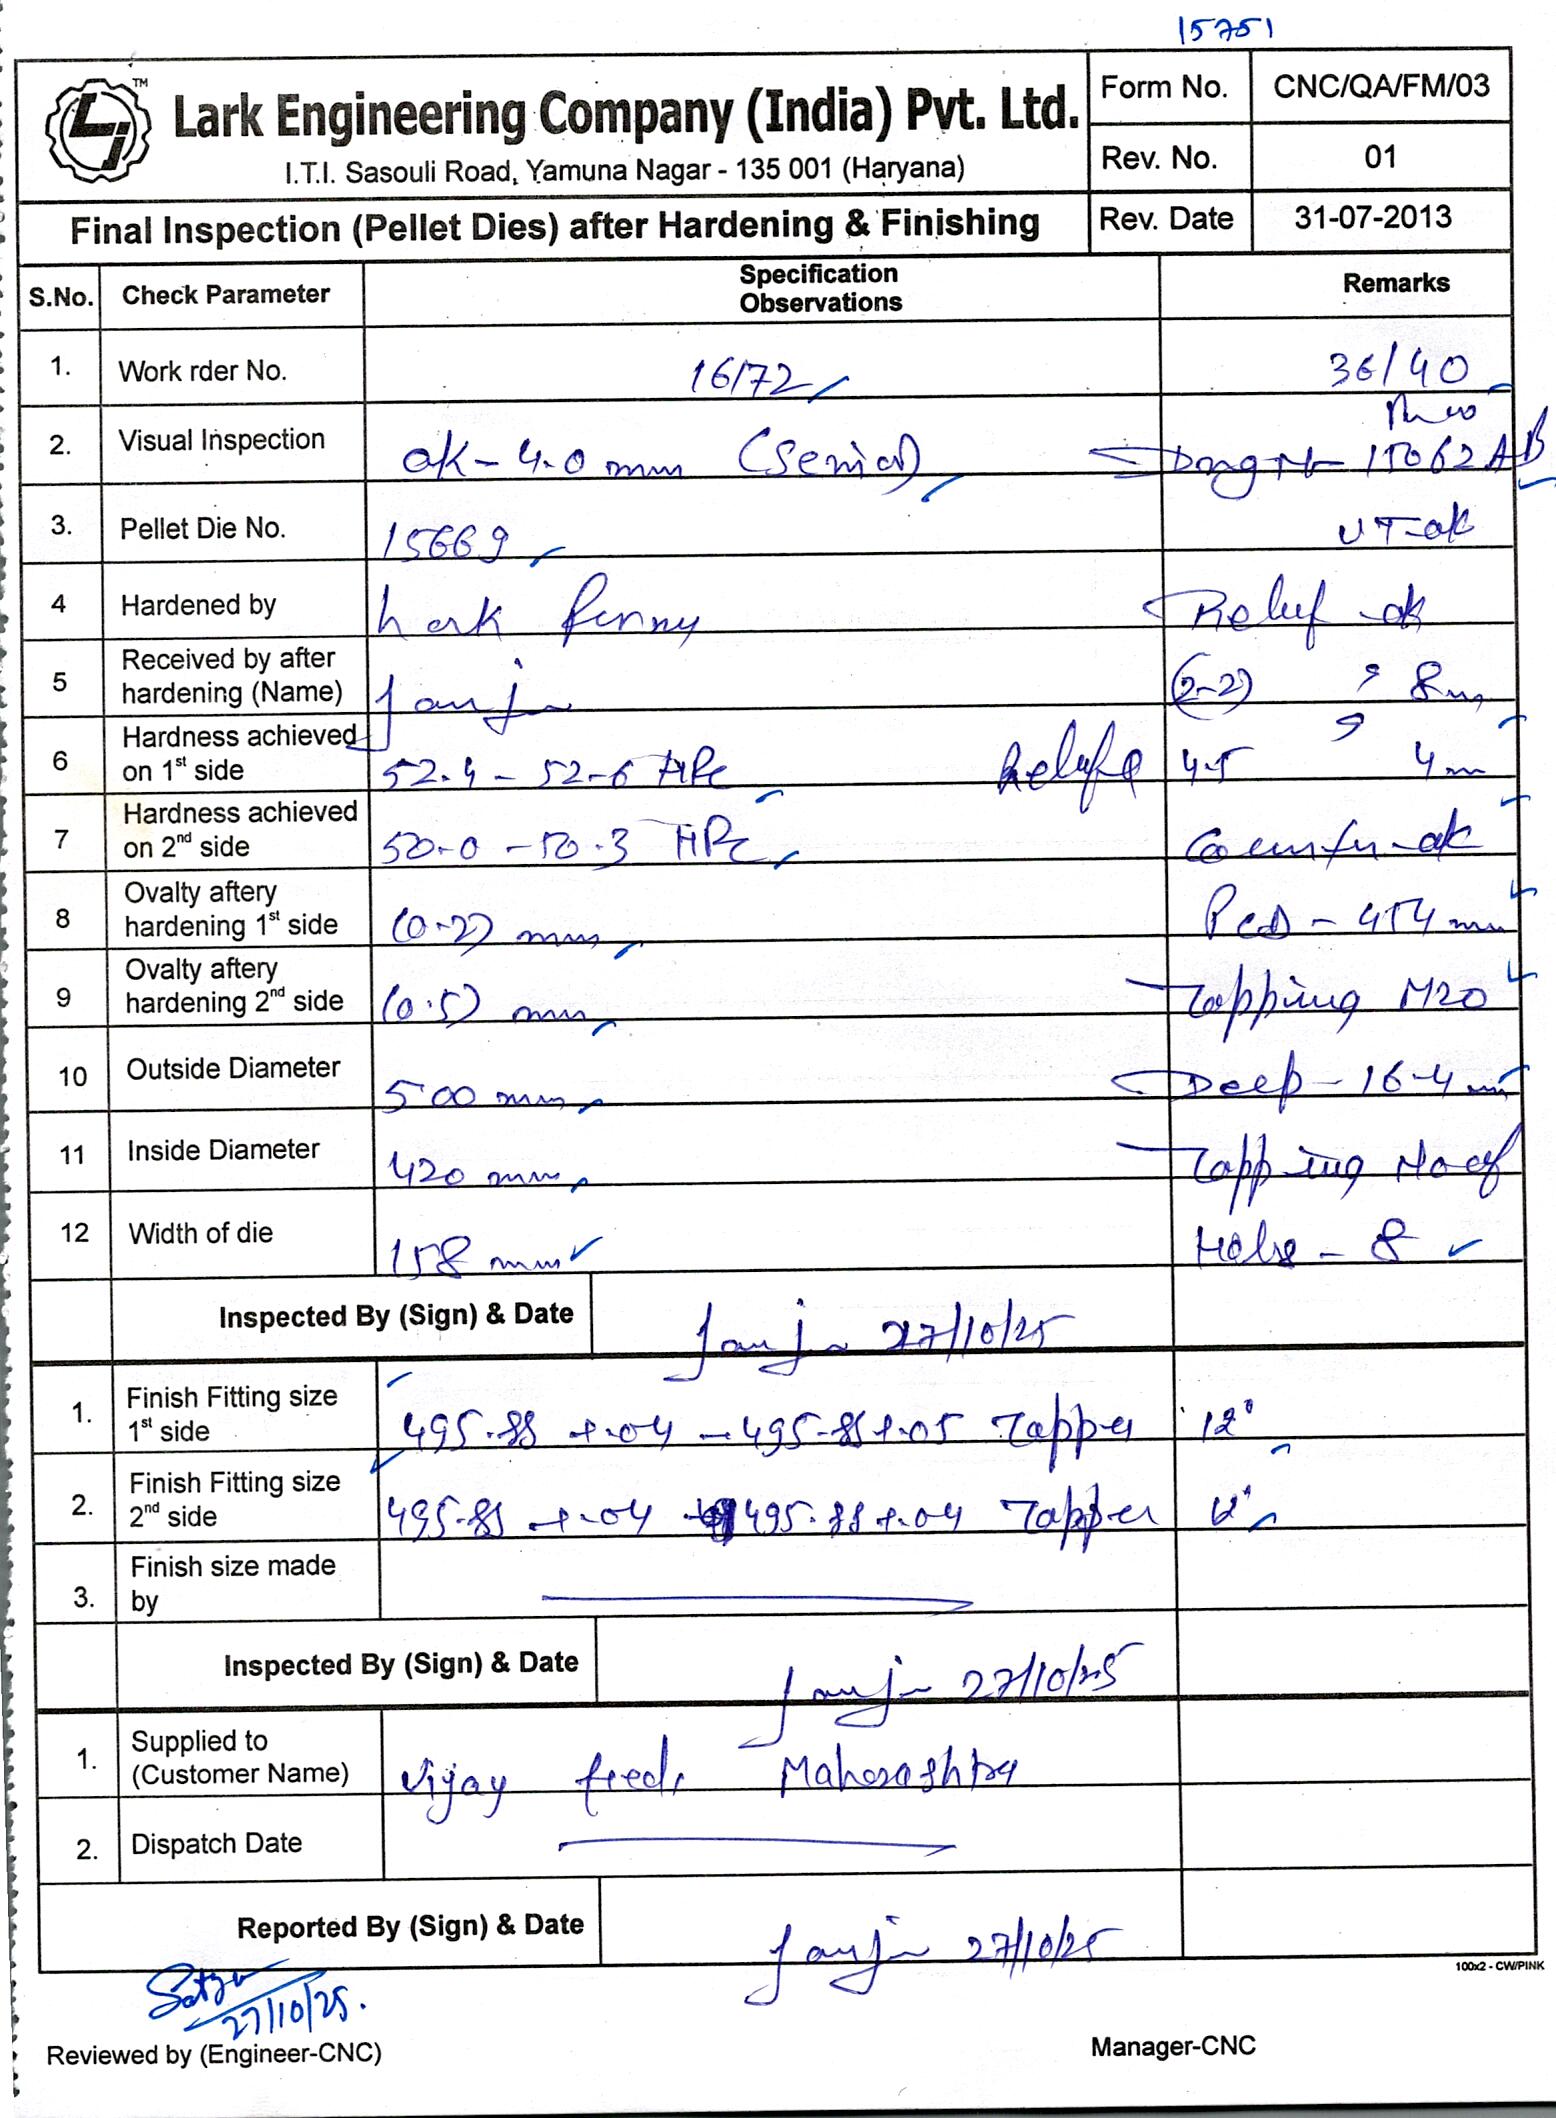 15751
TM
Lark Engineering Company (India) Pvt. Ltd.
I.T.I. Sasouli Road, Yamuna Nagar - 135 001 (Haryana)
Form No. CNC/QA/FM/03
Rev. No. 01
Final Inspection (Pellet Dies) after Hardening & Finishing
Rev. Date 31-07-2013
S.No. Check Parameter Specification Observations Remarks
1. Work rder No. 16172 36/40
2. Visual Inspection ok - 4.0 mm 15062 AB
3. Pellet Die No. 15669 UT-ok
4 Hardened by Lark Relief - ok
5 Received by after hardening (Name) (2-2) 8
6 Hardness achieved on 1st side 52.4 - 52-6 HRc 4.5 4
7 Hardness achieved on 2nd side 50-0 - 50.3 HRc ok
8 Ovalty aftery hardening 1st side (0-2) mm PCD - 454 mm
9 Ovalty aftery hardening 2nd side (0.5) mm Tapping M20
10 Outside Diameter 500 mm Deep - 16-4 mm
11 Inside Diameter 420 mm Tapping No of
12 Width of die 158 mm Hols - 8
Inspected By (Sign) & Date 27/10/25
1. Finish Fitting size 1st side 495.85 +.04 - 495.85+.05 Tapper 12°
2. Finish Fitting size 2nd side 495.85 +.04 495.85+.04 Tapper 12°
3. Finish size made by
Inspected By (Sign) & Date 27/10/25
1. Supplied to (Customer Name) Vijay feeds Maharashtra
2. Dispatch Date
Reported By (Sign) & Date 27/10/25
100x2 - CW/PINK
27/10/25.
Reviewed by (Engineer-CNC) Manager-CNC